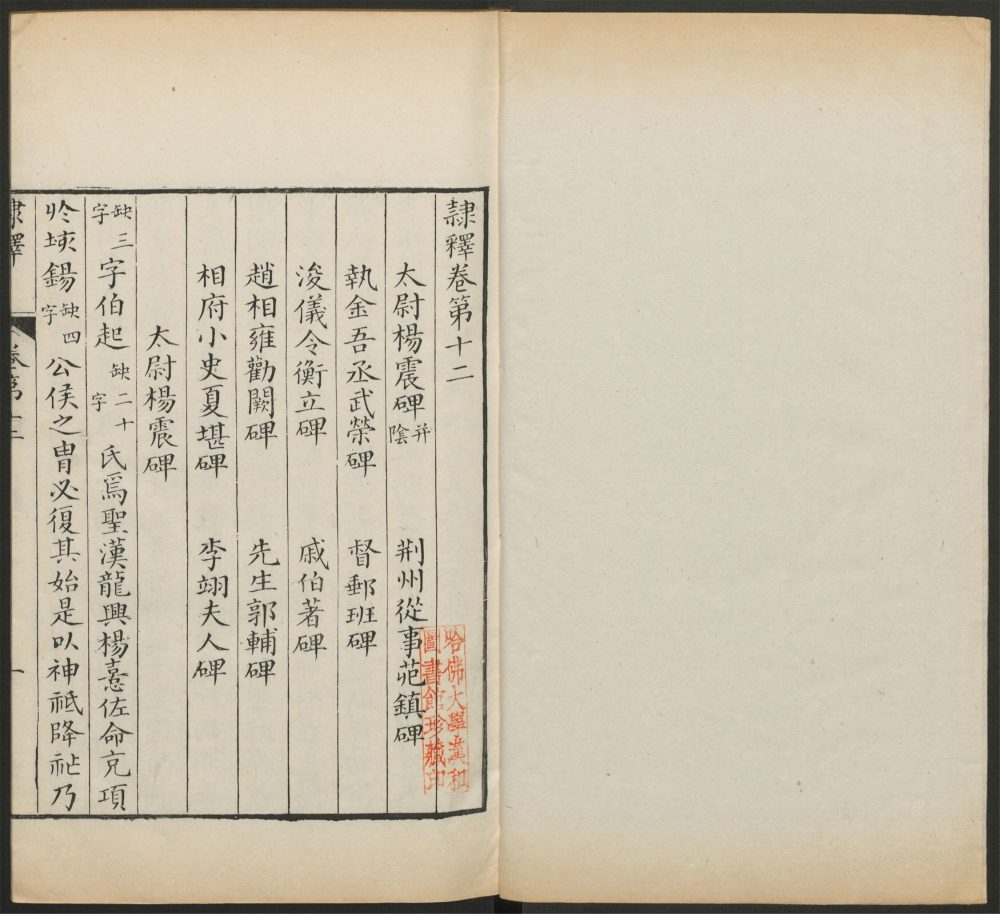 隷釋卷第十二
太尉楊震碑并陰 荆州從事苑鎮碑
執金吾丞武榮碑 督郵班碑
浚儀令衡立碑 戚伯著碑
趙相雍勸闕碑 先生郭輔碑
相府小史夏堪碑 李翊夫人碑
太尉楊震碑
缺三字字伯起缺二十字氏焉聖漢龍興楊憙佐命克項
於垓鍚缺四字公侯之胄必復其始是以神祗降祉乃
隷釋 卷第十二 一
哈佛大學漢和圖書館珍藏印